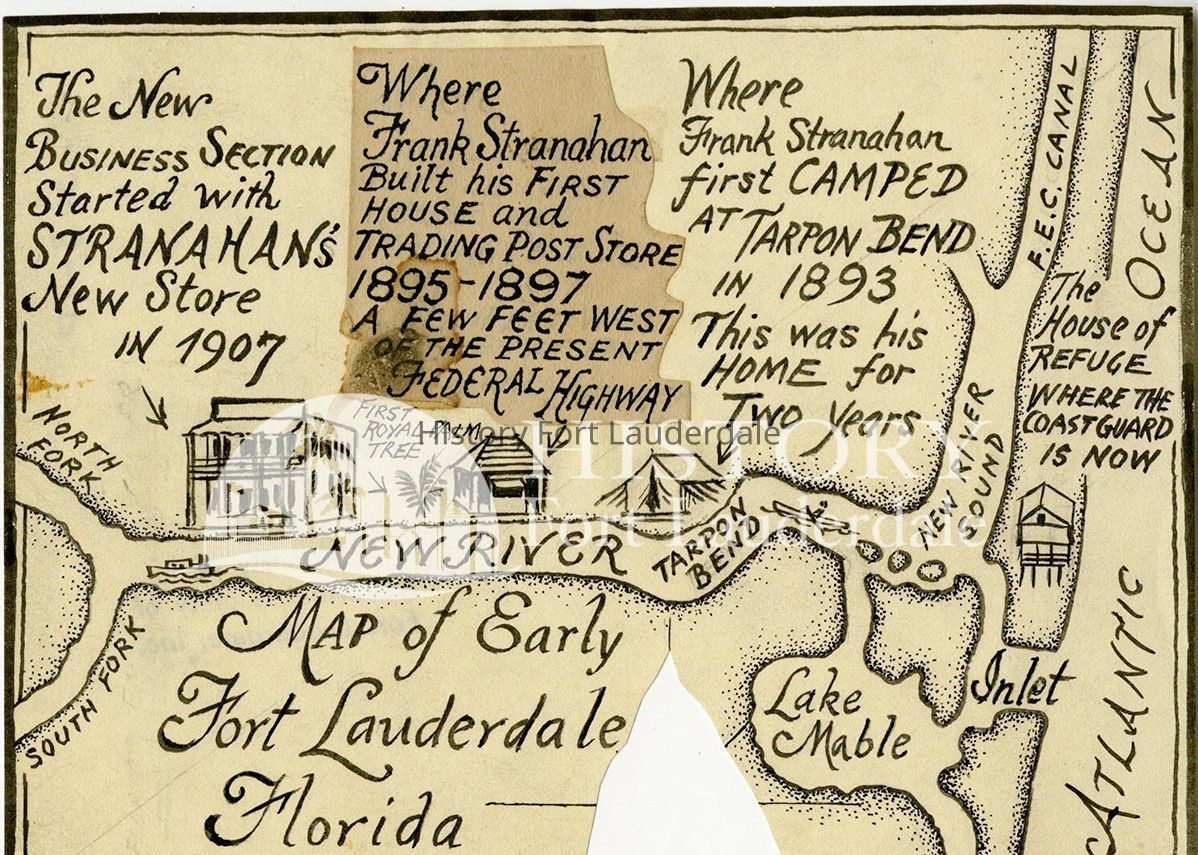 The New
Business Section
Started with
STRANAHAN's
New Store
IN 1907
Where
Frank Stranahan
Built his FIRST
HOUSE and
TRADING POST STORE
1895-1897
A FEW FEET WEST
OF THE PRESENT
FEDERAL HIGHWAY
Where
Frank Stranahan
first CAMPED
AT TARPON BEND
IN 1893
This was his
HOME for
Two years
F.E.C. CANAL
ATLANTIC OCEAN
The
House of
REFUGE
WHERE THE
COAST GUARD
IS NOW
NORTH
FORK
FIRST
ROYAL PALM
TREE
History Fort Lauderdale
HISTORY
Fort Lauderdale
NEW RIVER
TARPON
BEND
NEW RIVER
SOUND
SOUTH FORK
MAP of Early
Fort Lauderdale
Florida
Lake
Mable
Inlet